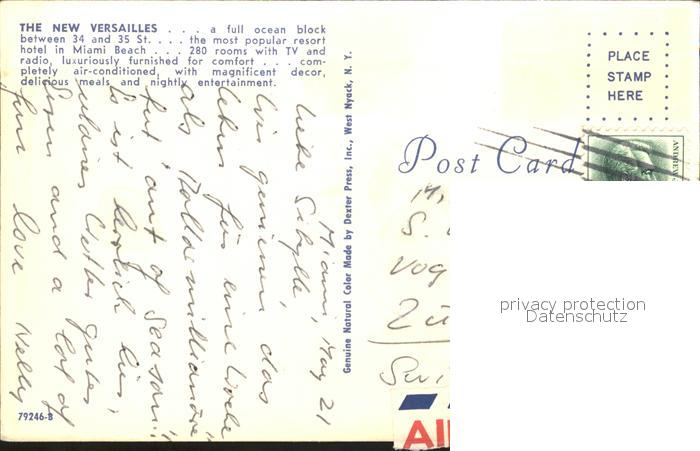 THE NEW VERSAILLES . . . a full ocean block
between 34 and 35 St. . . . the most popular resort
hotel in Miami Beach . . . 280 rooms with TV and
radio, luxuriously furnished for comfort . . . com-
pletely air-conditioned, with magnificent decor,
delicious meals and nightly entertainment.
Miami, May 21
Liebe Sibylle,
wir geniessen das
Leben für eine Woche
als "Dollarmillionäre"
but "out of Season"!
Es ist herrlich hier,
Wetter gutes
and a lot of
fun love Nelly
79246-B
Genuine Natural Color Made by Dexter Press, Inc., West Nyack, N. Y.
Post Card
PLACE
STAMP
HERE
ANDREW
S.
Vog
Zü
privacy protection
Datenschutz
AI